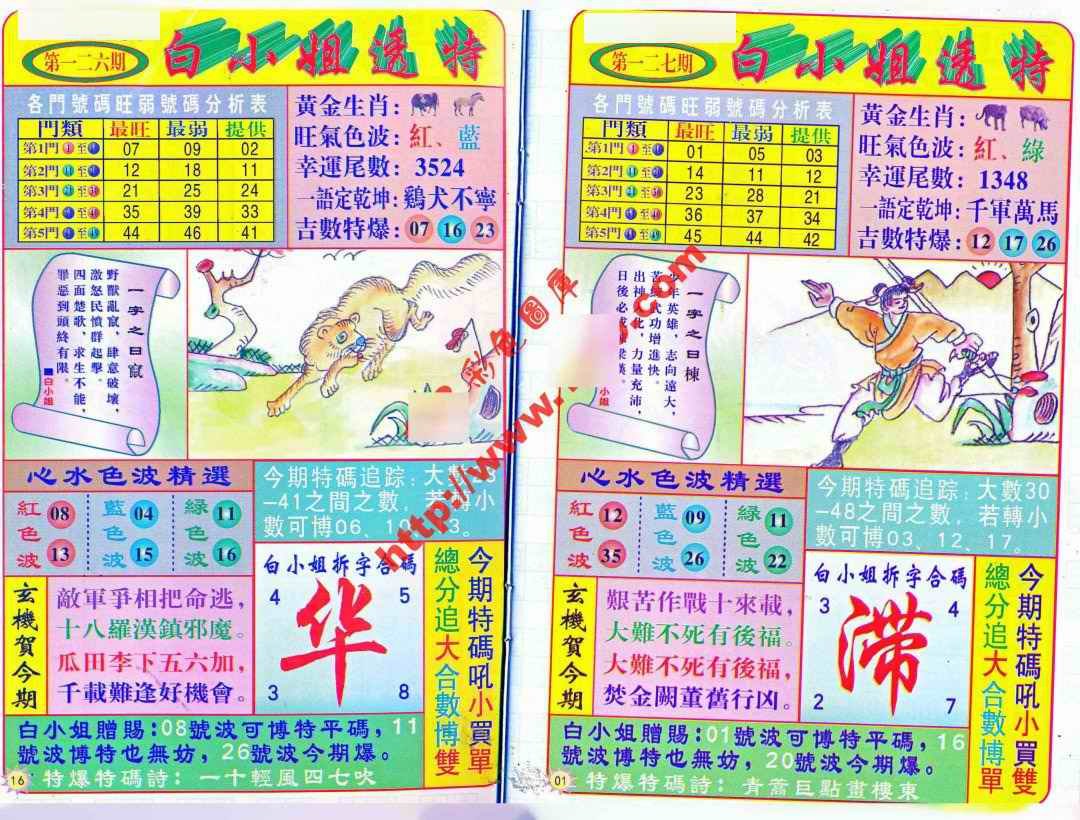 第一二六期
白小姐透特
各門號碼旺弱號碼分析表
門類 最旺 最弱 提供
第1門 至 07 09 02
第2門 至 12 18 11
第3門 至 21 25 24
第4門 至 35 39 33
第5門 至 44 46 41
黃金生肖:
旺氣色波:紅、藍
幸運尾數: 3524
一語定乾坤:鷄犬不寧
吉數特爆:07 16 23
一字之曰竄
野獸亂竄，肆意破壞，
激怒民憤群起擊。
四面楚歌，求生不能，
罪惡到頭終有限。
■白小姐
心水色波精選
紅色波 08 13
藍色波 04 15
綠色波 11 16
今期特碼追踪:大數
-41之間之數，若轉小
數可博06、10、
白小姐拆字合碼
4 5
华
3 8
玄機賀今期
敵軍爭相把命逃，
十八羅漢鎮邪魔。
瓜田李下五六加，
千載難逢好機會。
今期特碼吼小買單
總分追大合數博雙
白小姐贈賜:08號波可博特平碼，11
號波博特也無妨，26號波今期爆。
特爆特碼詩:一十輕風四七吹
16
第一二七期
白小姐透特
各門號碼旺弱號碼分析表
門類 最旺 最弱 提供
第1門 至 01 05 03
第2門 至 14 11 12
第3門 至 23 28 21
第4門 至 36 37 34
第5門 至 45 44 42
黃金生肖:
旺氣色波:紅、綠
幸運尾數: 1348
一語定乾坤:千軍萬馬
吉數特爆:12 17 26
一字之曰棟
少年英雄，志向遠大，
苦練武功增進快。
出神入化，力量充沛，
日後必成
小姐
心水色波精選
紅色波 12 35
藍色波 09 26
綠色波 11 22
今期特碼追踪:大數30
-48之間之數，若轉小
數可博03、12、17。
白小姐拆字合碼
3 4
滞
2 7
玄機賀今期
艱苦作戰十來載，
大難不死有後福。
大難不死有後福，
焚金闕董舊行凶。
今期特碼吼小買雙
總分追大合數博單
白小姐贈賜:01號波可博特平碼，16
號波博特也無妨，20號波今期爆。
特爆特碼詩:青蒿巨點畫樓東
01
彩色圖庫
http://www.
.com